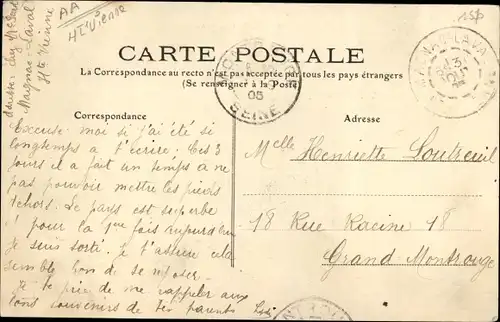 AA
Hte Vienne
15F
Magnac-Laval
Hte Vienne
CARTE POSTALE
La Correspondance au recto n'est pas acceptée par tous les pays étrangers
(Se renseigner à la Poste)
MAGNAC-LAVAL
05
SEINE
Correspondance
Adresse
Excuse moi si j'ai été si
longtemps à t'écrire. Ces 3
jours il a fait un temps à ne
pas pouvoir mettre les pieds
dehors. Le pays est superbe
pour la 1ere fois aujourd'hui
je suis sorti. Je t'assure cela
semble bon de se reposer.
Je te prie de me rappeler aux
bons souvenirs de tes parents
Melle Henriette Loutreuil
18 Rue Racine 18
Grand Montrouge